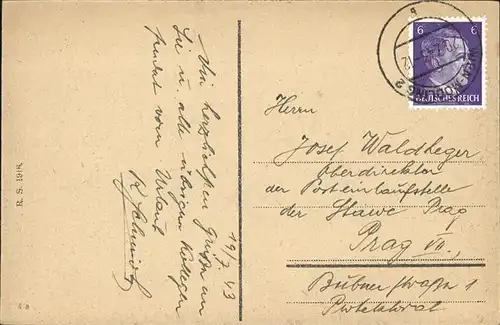 Die herzlichsten Grüße an
Sie u. alle übrigen Kollegen
sendet vom
Urlaub
R. Schmidt
19/7. 43
R. S. 1918.
6 6
DEUTSCHES REICH
Herrn
Josef Waldheger
Oberdirektor
der Posteinlaufstelle
der Skawe Prag
Prag VII.,
Bubnerstrasse 1
Protektorat